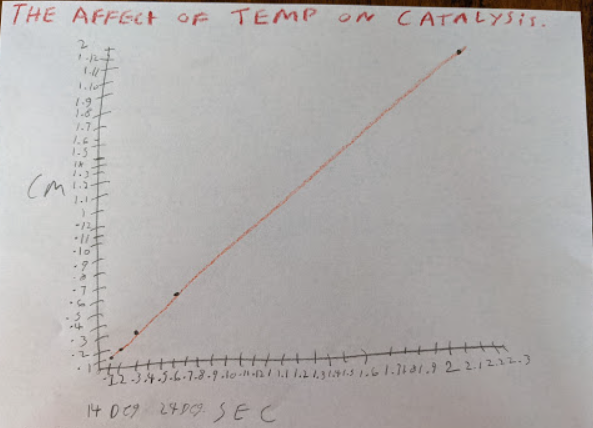 THE AFFECT OF TEMP ON CATALYSIS.
2
1.12
1.11
1.10
1.9
1.8
1.7
1.6
1.5
1.4
1.3
1.2
1.1
1
.12
.11
.10
.9
.8
.7
.6
.5
.4
.3
.2
.1
CM
.1 2 .3 .4 .5 .6 .7 .8 .9 .10 .11 .12 1 1.1 1.2 1.3 1.4 1.5 1.6 1.7 1.8 1.9 2 2.1 2.2 2.3
14 DEG 24 DEG SEC